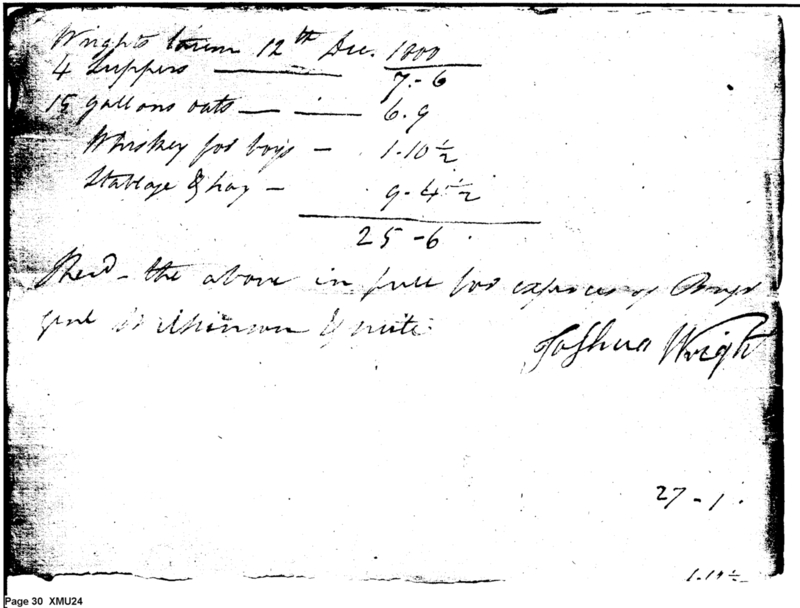 Wrights tavern 12th Dec. 1800
4 Suppers — 7.-6
15 gallons oats — — 6.9
Whiskey for boys - 1.10 1/2
Stablage & hay - 9.4 1/2
25-6.
Recd- the above in full for expences of Brigr
genl Wilkinson & suite.
Joshua Wright
27-1.
1.10 1/2
Page 30 XMU24